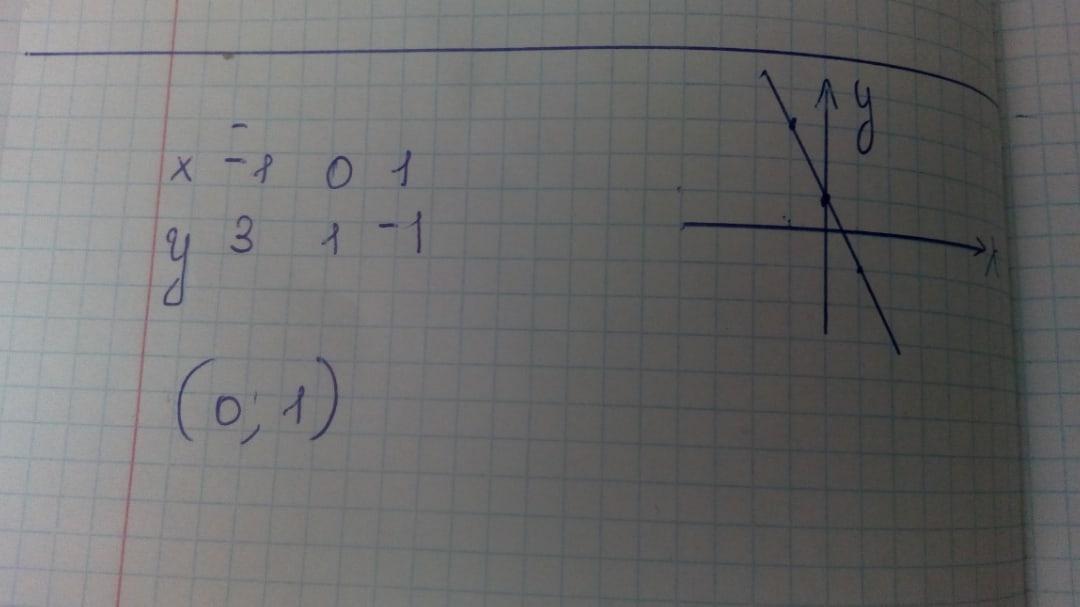 x -1 0 1
y 3 1 -1
(0; 1)
y
x